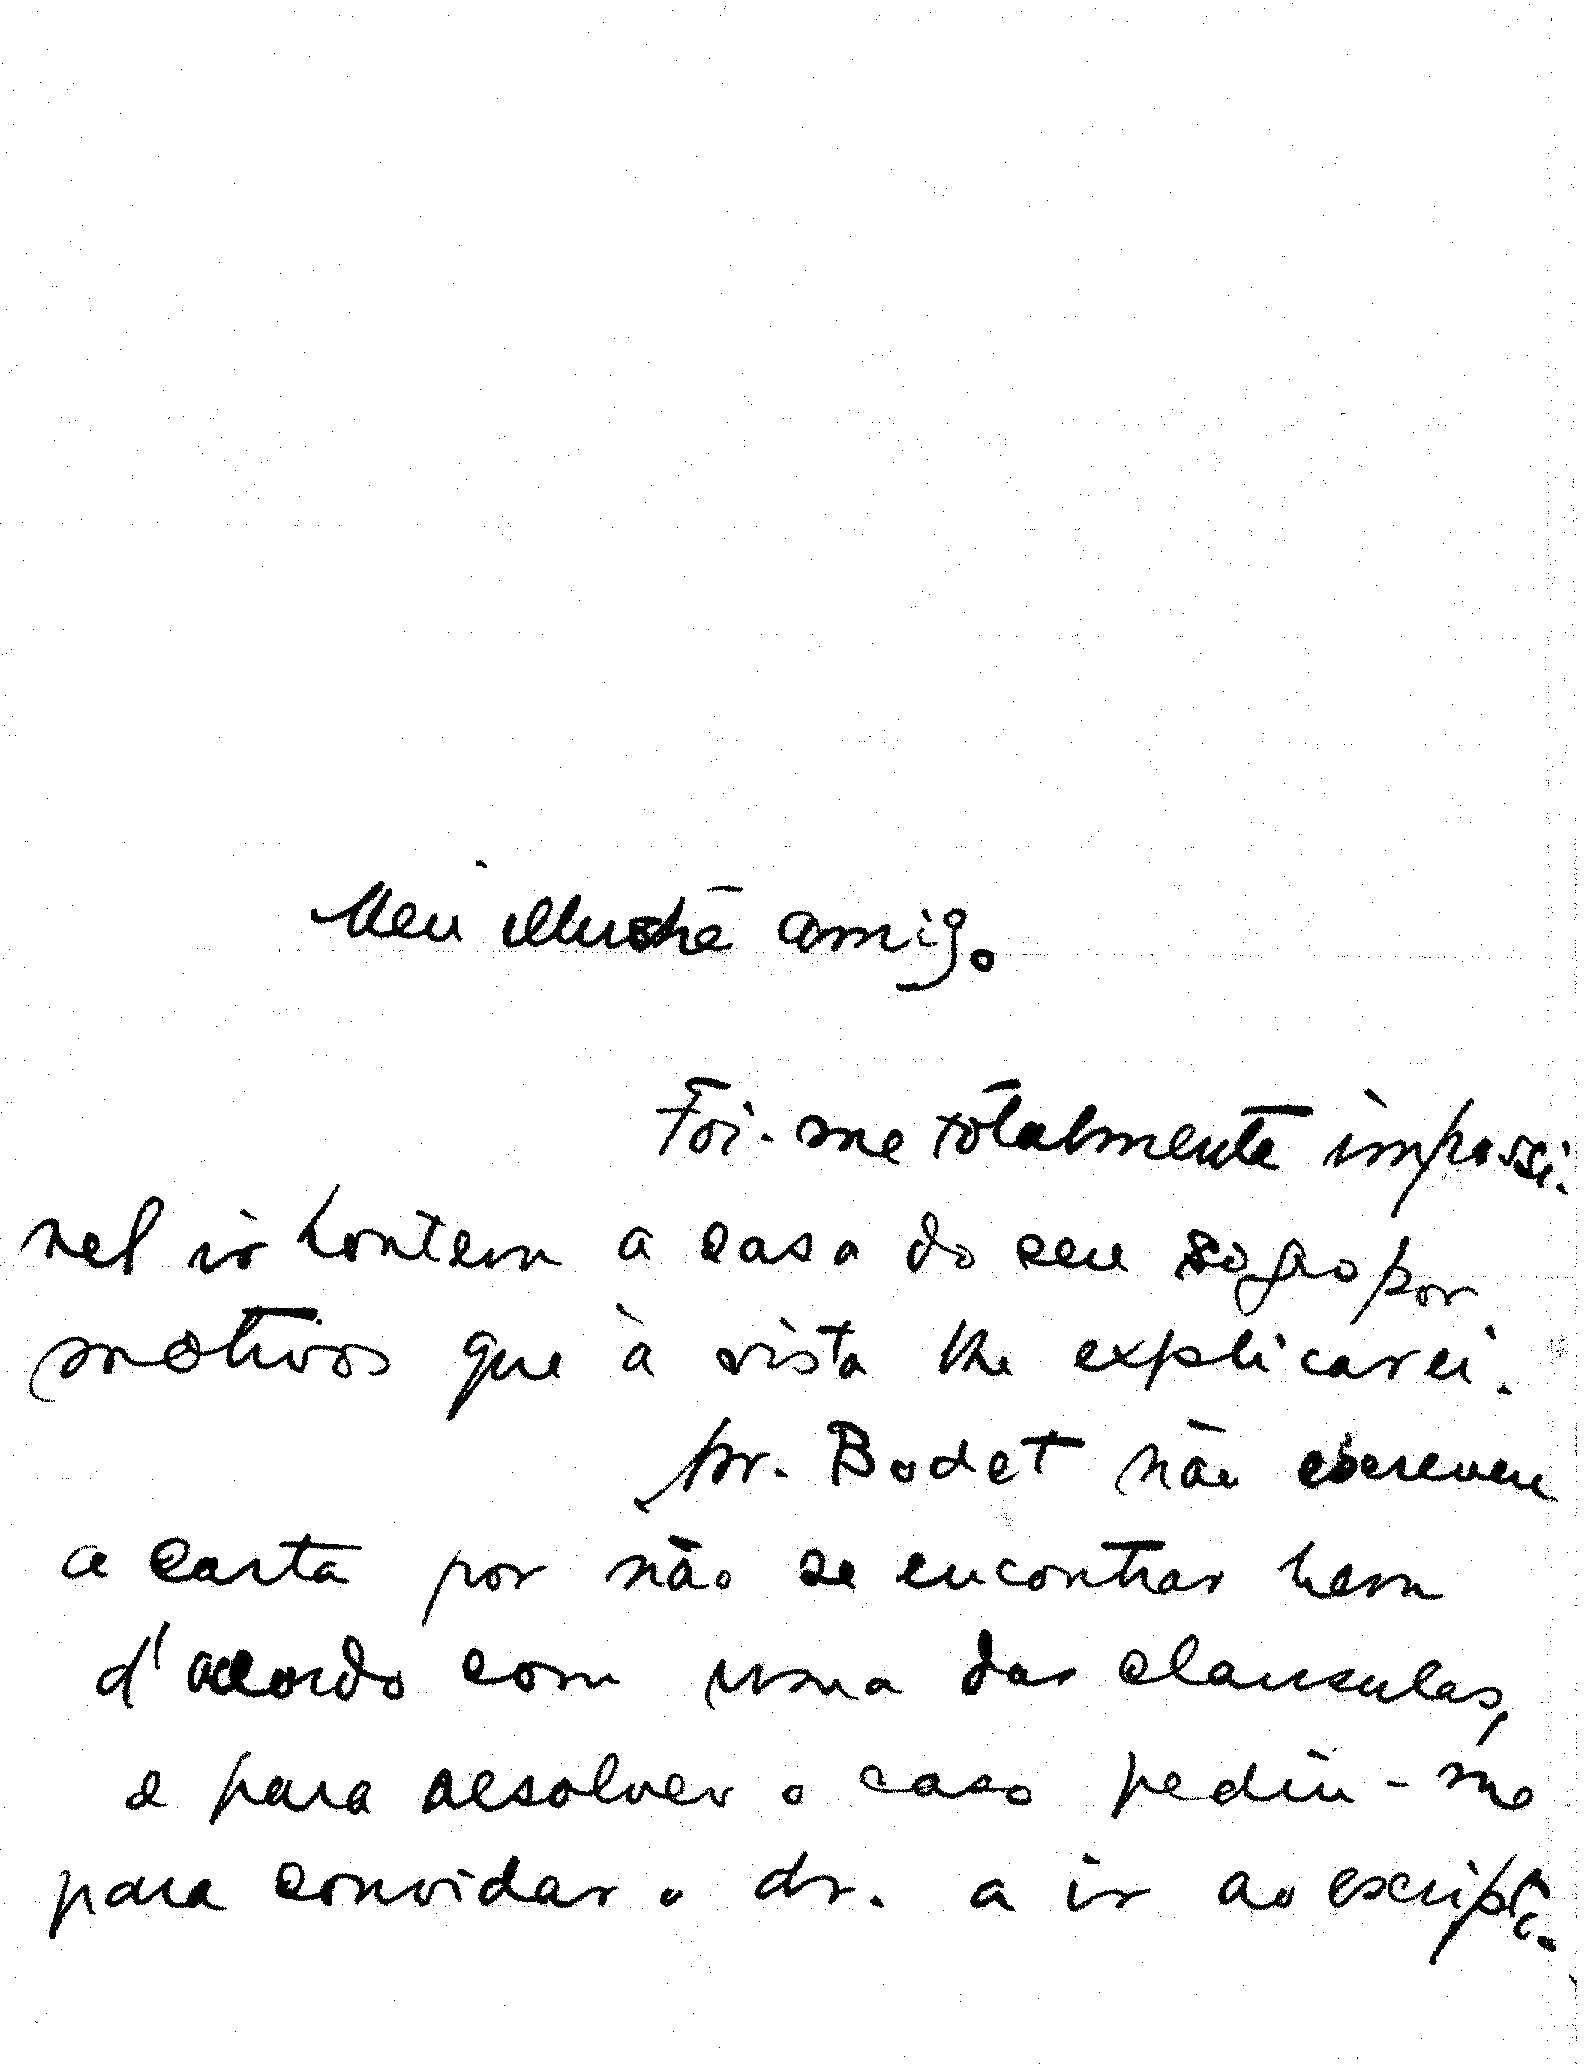 Meu illustre amigo
Foi-me totalmente impossi-
vel ir hontem a casa do seu sogro por
motivos que à vista lhe explicarei.
Mr. Bodet não escreveu
a carta por não se encontrar bem
d'acordo com uma das clausulas,
e para resolver o caso pediu-me
para convidar o dr. a ir ao escripto-